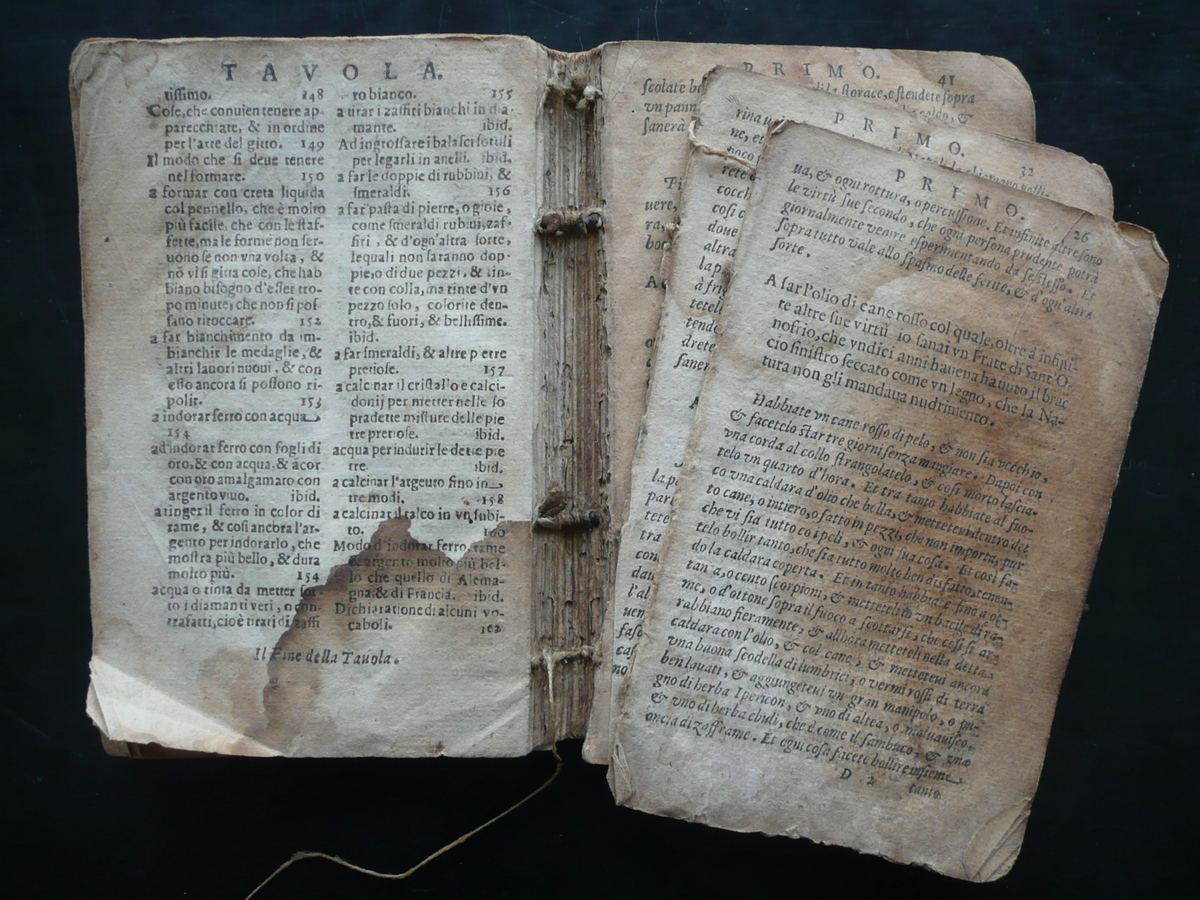 TAVOLA.
tissimo. 148
Cose, che conuien tenere ap-
parecchiate, & in ordine
per l'arte del gitto. 149
Il modo che si deue tenere
nel formare. 150
a formar con creta liquida
col pennello, che è molto
più facile, che con le staf-
fette, ma le forme non ser-
uono se non vna volta, &
nõ vi si gitta cose, che hab
biano bisogno d'esser tro-
po minute, che non si pos-
sano ritoccare. 152
a far bianchimento da im-
bianchir le medaglie, &
altri lauori nuoui, & con
esso ancora si possono ri-
polir. 153
a indorar ferro con acqua
154
ad indorar ferro con fogli di
oro, & con acqua, & ácor
con oro amalgamato con
argento viuo. ibid.
a tinger il ferro in color di
rame, & così ancora l'ar-
gento per indorarlo, che
mostra più bello, & dura
molto più. 154
acqua o tinta da metter sot-
to i diamanti veri, o con-
trafatti, cioè tirati di zaffi
ro bianco. 155
a tirar i zaffiri bianchi in dia-
mante. ibid.
Ad ingrossare i balasci sottili
per legarli in anelli. ibid.
a far le doppie di rubbini, &
smeraldi. 156
a far pasta di pietre, o gioie,
come smeraldi rubini, zaf-
firi, & d'ogn'altra sorte,
lequali non saranno dop-
pie, o di due pezzi, & tin-
te con colla, ma tinte d'vn
pezzo solo, colorite den-
tro, & fuori, & bellissime.
ibid.
a far smeraldi, & altre pietre
pretiose. 157
a calcinar il cristallo e calci-
donij per metter nelle so
pradette misture delle pie
tre pretiose. ibid.
acqua per indurir le dette pie
tre. ibid.
a calcinar l'argento fino in
tre modi. 158
a calcinar il talco in vn subi-
to. 160
Modo d'indorar ferro, rame
et argento molto più bel-
lo che quello di Alema-
gna, & di Francia. ibid.
Dichiaratione di alcuni vo-
caboli. 162
Il Fine della Tauola.
PRIMO. 41
scolate
storace, e stendete sopra
vn pann
caldo, &
sanerà
PRIMO. 32
PRIMO. 26
ua, & ogni rottura, o percussione. Et infinite altre sono
le virtù sue secondo, che ogni persona prudente potrà
giornalmente venire esperimentando da se stesso. Et
sopra tutto vale allo spasmo delle ferite, & d'ogn'altra
sorte.
A far l'olio di cane rosso col quale, oltre à infini-
te altre sue virtù io sanai vn Frate di Sant'O-
nofrio, che vndici anni haueua hauuto il brac
cio sinistro seccato come vn legno, che la Na-
tura non gli mandaua nudrimento.
Habbiate vn cane rosso di pelo, & non sia vecchio,
& facetelo star tre giorni senza mangiare. Dapoi con
vna corda al collo strangolatelo, & così morto lascia-
telo vn quarto d'hora. Et tra tanto habbiate al fuo-
co vna caldara d'olio che bolla, & metteteui dentro det
to cane, o intiero, o fatto in pezzi, che non importa, pur
che vi sia tutto co i peli, & ogni sua cosa. Et così fa-
telo bollir tanto, che sia tutto molto ben disfatto, tenen-
do la caldara coperta. Et in tanto habbiate fino a ot-
tanta, o cento scorpioni, & metteteli in vn bacile di ra-
me, o d'ottone sopra il fuoco a scottarsi, che così si ar-
rabbiano fieramente, & allhora metteteli nella detta
caldara con l'olio, & col cane, & metteteui ancora
vna buona scodella di lumbrici, o vermi rossi di terra
ben lauati, & aggiungeteui vn gran manipolo, o pu-
gno di herba Ipericon, & vno di altea, o maluauisco,
& vno di herba ebuli, che è come il sambuco, & vna
oncia di zafframe. Et ogni cosa facete bollire insieme
D 2 tanto